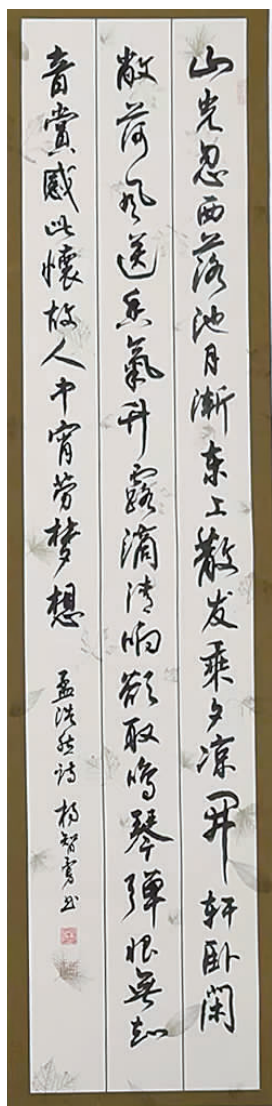 山光忽西落池月漸东上散发乘夕凉开轩卧闲
敞荷风送香氣竹露滴清响欲取鸣琴弹恨无知
音賞感此懷故人中宵劳梦想
孟浩然诗 杨智勇书